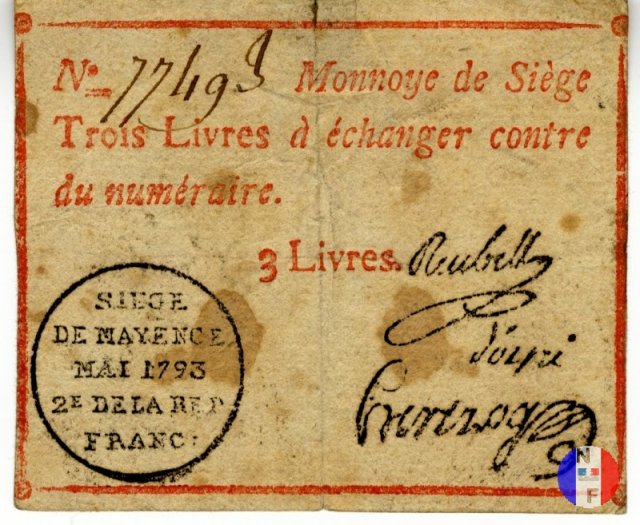 No. 7749 Monnoye de Siège
Trois Livres à échanger contre
du numéraire.
3 Livres.
Reubell
SIEGE
DE MAYENCE
MAI 1793
2E DE LA REP
FRANC:
N
F